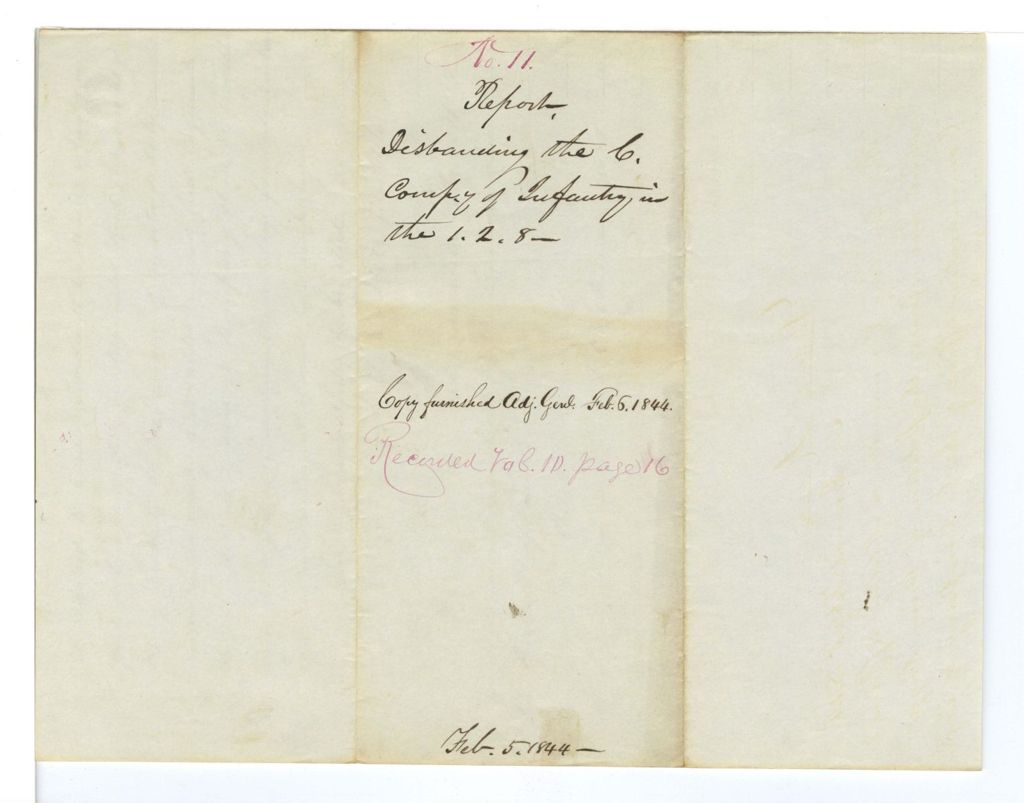 No. 11.
Report,
Disbanding the C.
Comp.y of Infantry, in
the 1. 2. 8—
Copy furnished Adj. Genl. Feb. 6. 1844.
Recorded Vol. 10. page 16
Feb. 5. 1844—